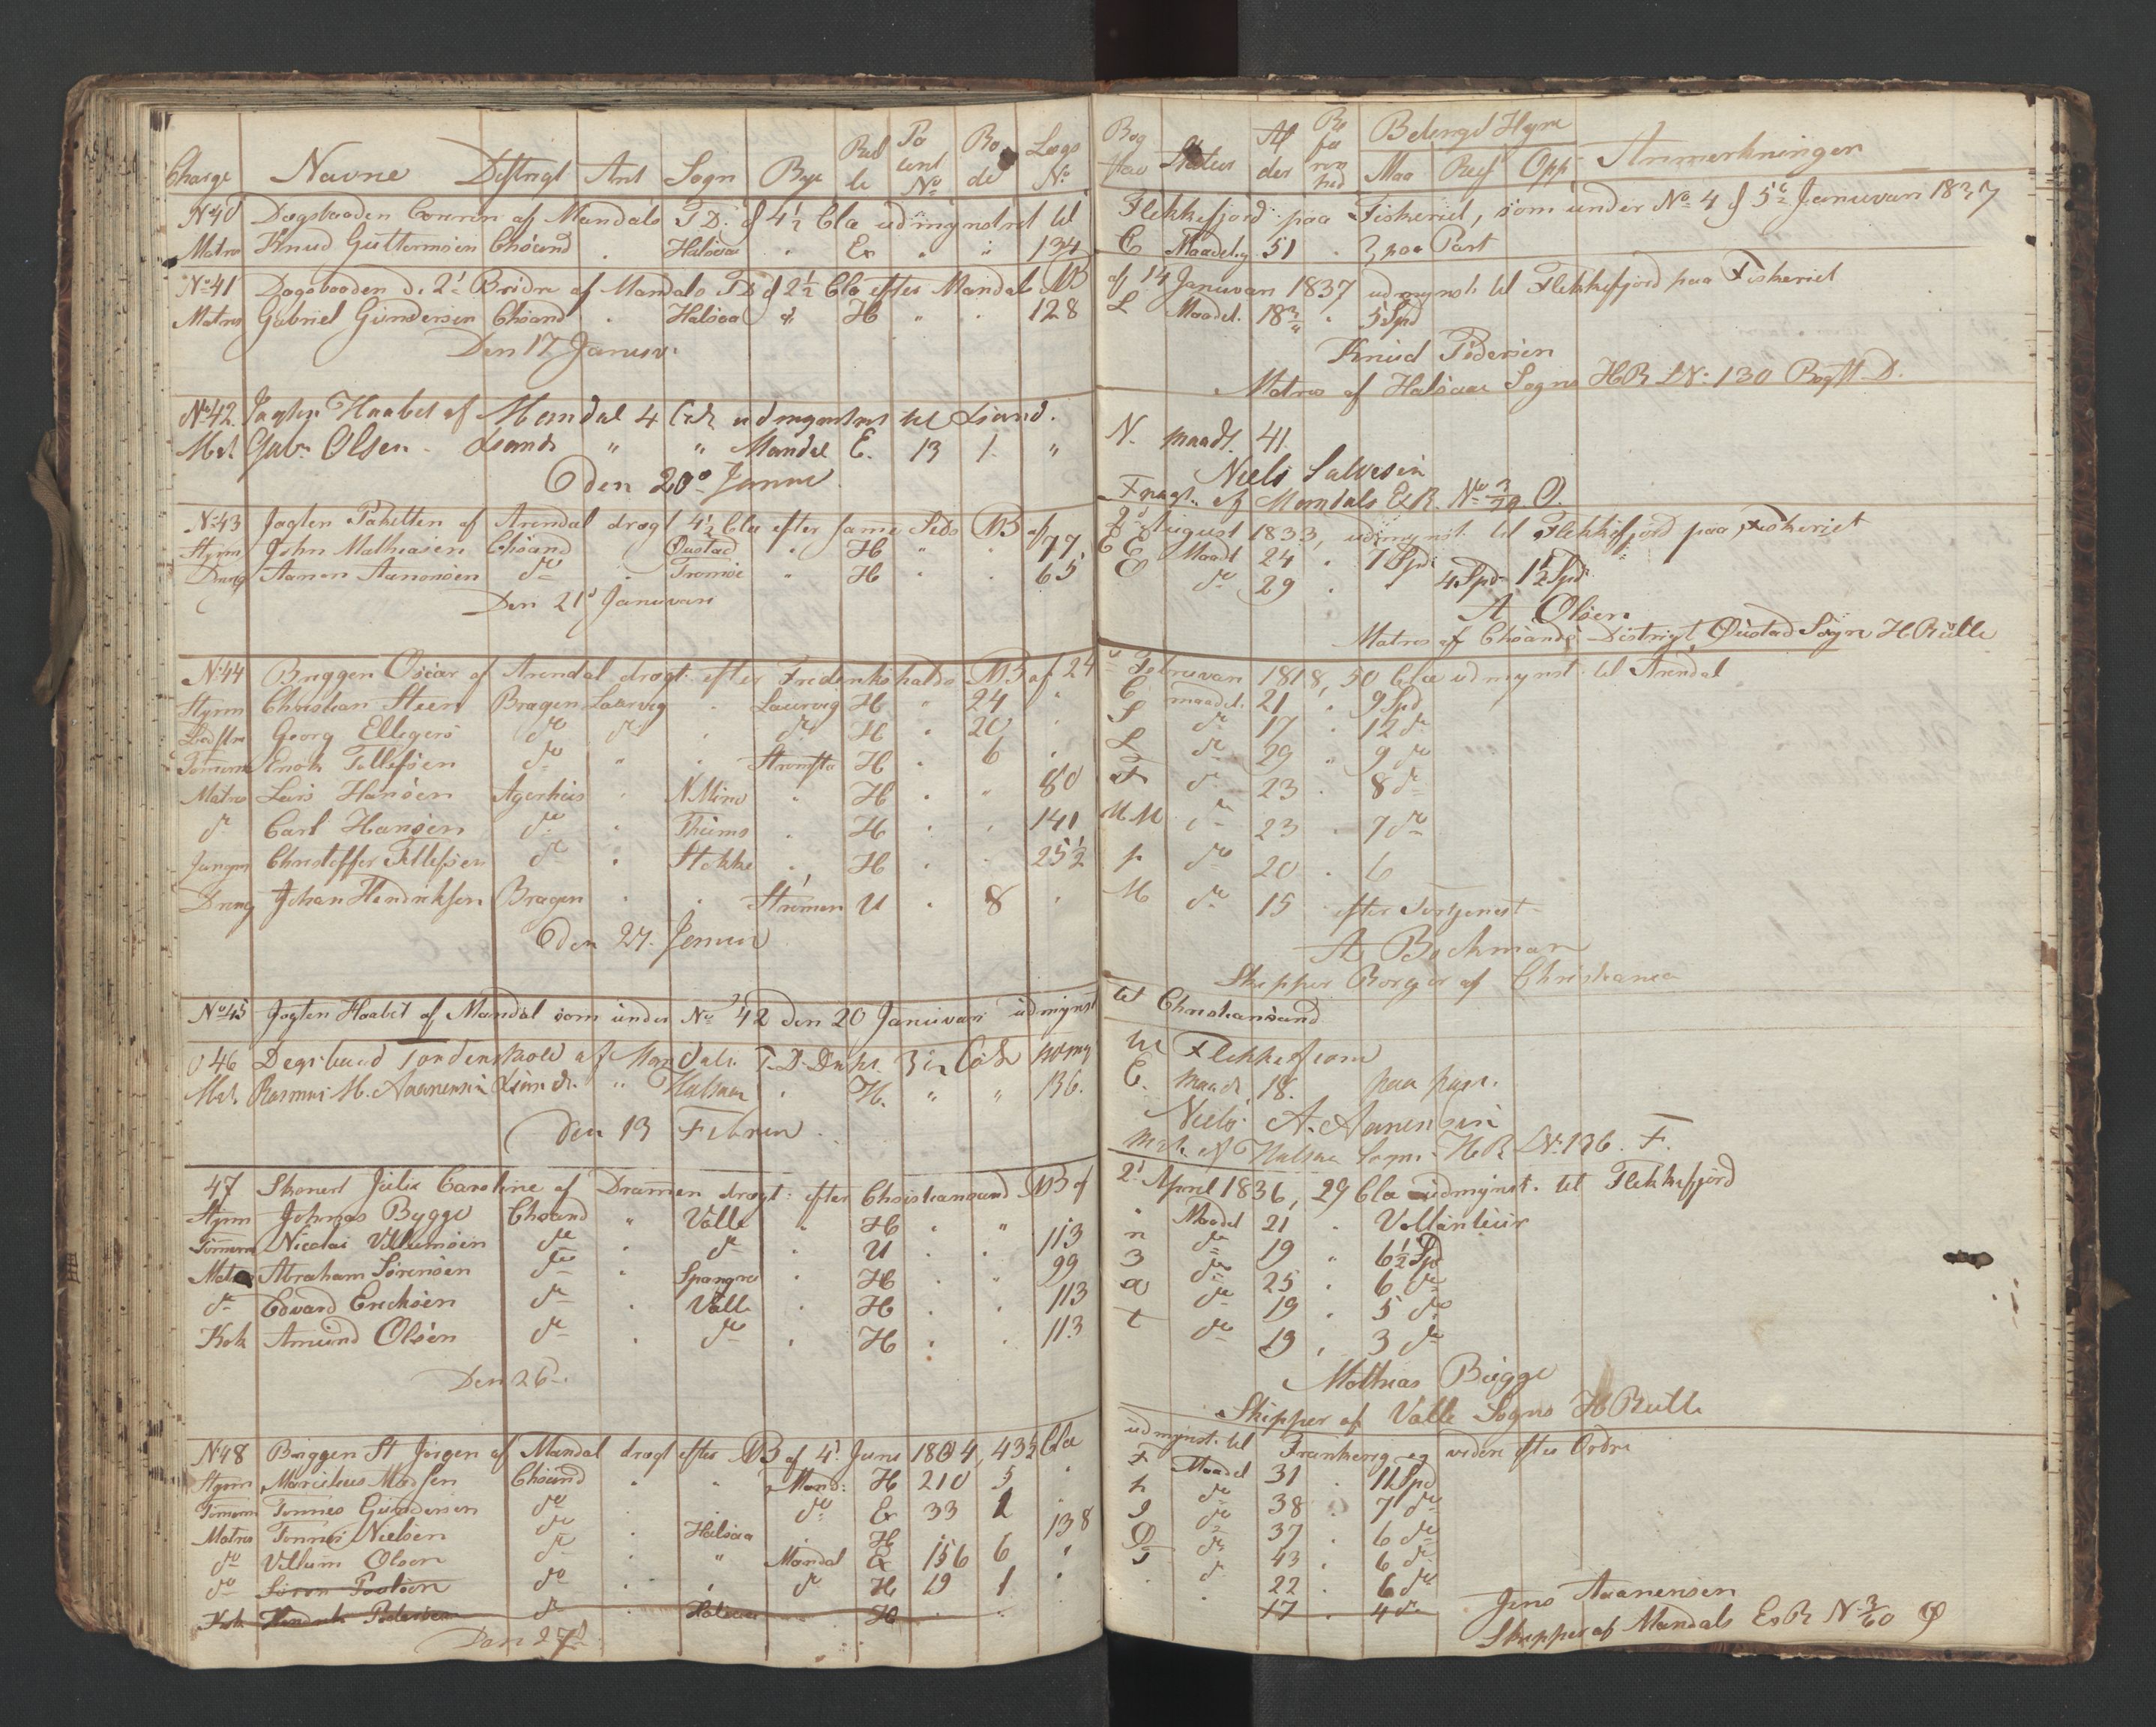 Charge Navne Distrigt Amt Sogn Bye Rul le Pa tent No Ro de Laegs No
No 40 Dagsbaaden Conrein af Mandals T D: d 4 1/2 Cla udmynstret til
Matros Knud Guttormsen Chsand . Halsaa . Ex " " 134
No 41 Dagsbaaden de 2de Brødre af Mandals T D d 2 1/2 Cla efter Mandals MB
Matros Gabriel Gundersen Chsand . Halsaa " H " . 128
Den 17 Januv:
No 42. Jagten Haabet af Mandal 4 udmynstret til Xsand.
Mat Gab. Olsen - Xsands " " Mandal E. 13 1. "
den 20de Januv
No 43 Jagten Paketten af Arendal drægt 4 1/2 Cla efter same Steds MB af
Styrm John Mathiasen Chsand . Øustad . H " . 77
Dreng Aanon Aanonsen do . Tromøe " H . . 65
Den 21de Januvari
No 44 Briggen Oscar af Arendal drægt. efter Frederikshalds MB af 24
Styrm Christian Steen Bragen Laurvig . Laurvig H " 24 "
Georg Ellegers do do . do H . 20 .
Tømerm Enok Tellefsen do " . Strømsøe H . 6 .
Matros Lars Hansen Agerhus . . H . " 80
do Carl Hansen do . . H . . 141
Jungm Christoffer Tellefsen do . Stokke . H . . 25 1/2
Dreng Johan Hendriksen Bragen . . Strømen U . 8 .
den 27. Januv
No 45 Jagten Haabet af Mandal som under No 42 den 20 Januvari udmynst
46 Tordenskiold af Mandals T. D. 3 1/2
Mat. Rasmus M. Aanensen Xsands. " Halsaa . H. " " 136.
den 13 Februv
47 Skonert Julie Caroline af Dramen drægt: efter Christiansand MB af
Styrm Johnas Bygge Chsand " Valle " H . " 113
Tømerm Nicolai Villumsen do . do . U . . 99
Matros Abraham Sørensen do . Spangre . H . " 113
do Edvard Ericksen do . Valle . H . . 113
Kok Amund Olsen do . do . H . .
Den 26.
No 48 Briggen St Jørgen af Mandal drægt efter MB af 4de Juni 1804, 43 1/2 Cla
Styrm Marcelius Madsen Chsand . " Mand: H 210 5 "
Tømerm Tønnes Gundersen do . . do Ex 33 1 .
Matros Tønnes Nielsen do . Halsaa . H 138
do Villum Olsen do . " Mandal Ex 156 6 "
do Søren Poulsen do . " do H 19 1 "
Kok Hendrik Pedersen do . Halsaa . H . .
Den 27de
Bog stav Status Al der Be fa ren hed Betingt Hyre Maa Reis Opp Anmerkninger
Flekkefjord paa Fiskeriet, som under No 4 d 5te Januvari 1837
C Maadelig 51 . paa Part
af 14 Januvari 1837 udmynst. til Flekkefjord paa Fiskeriet
L Maadel. 18 3/4 . 5 Spd
Knud Pedersen
Matros af Halsaae Sogns HR LNo 130 Bogst D.
N. maadl. 41
Niels Salvesen
af Mandals Ex R. No O.
August 1833, udmynst. til Flekkefjord paa Fiskeriet
E Maadl 24 . 1 Spd
E do 29 . 4 Spd 1 1/2 Spd
A Olsen
Matros af Chsands Distrigt Øustad Sogn H Rulle
Februvari 1818, 50 Cla udmynst. til Arendal
C maadel. 21 . 9 Spd
S do 17 . 12 do
L do 29 " 9 do
F do 23 . 8 do
M M do 23 . 7 do
p do 20 . 6
M do 15 . efter Fortjenest
A Bockman
Skipper Borger af Christiania
til Christiansand
til Flekkefjord
E. maadl 18. paa part.
Niels A. Aanensen
Mat. af Halsaa Sogn H R LNo 126. F.
2de April 1836, 29 Cla udmynst. til Flekkefjord
" Maadel 21 . Vollanteur
n do 19 " 6 1/2 Spd
3 do 25 . 6 do
a do 19 . 5 do
t do 19 , 3 do
Mathias Bugge
Skipper af Valle Sogns H Rulle
udmynst. til Frankerig og videre efter Ordre
F Maadel 31 . 11 Spd
h do 38 . 7 do
g do 37 . 6 do
do 43 . 6 do
. do 22 . 6 do
. 17 . 4 do
Jens Aanensen
Skipper af Mandals Ex R No 3/60 Ø